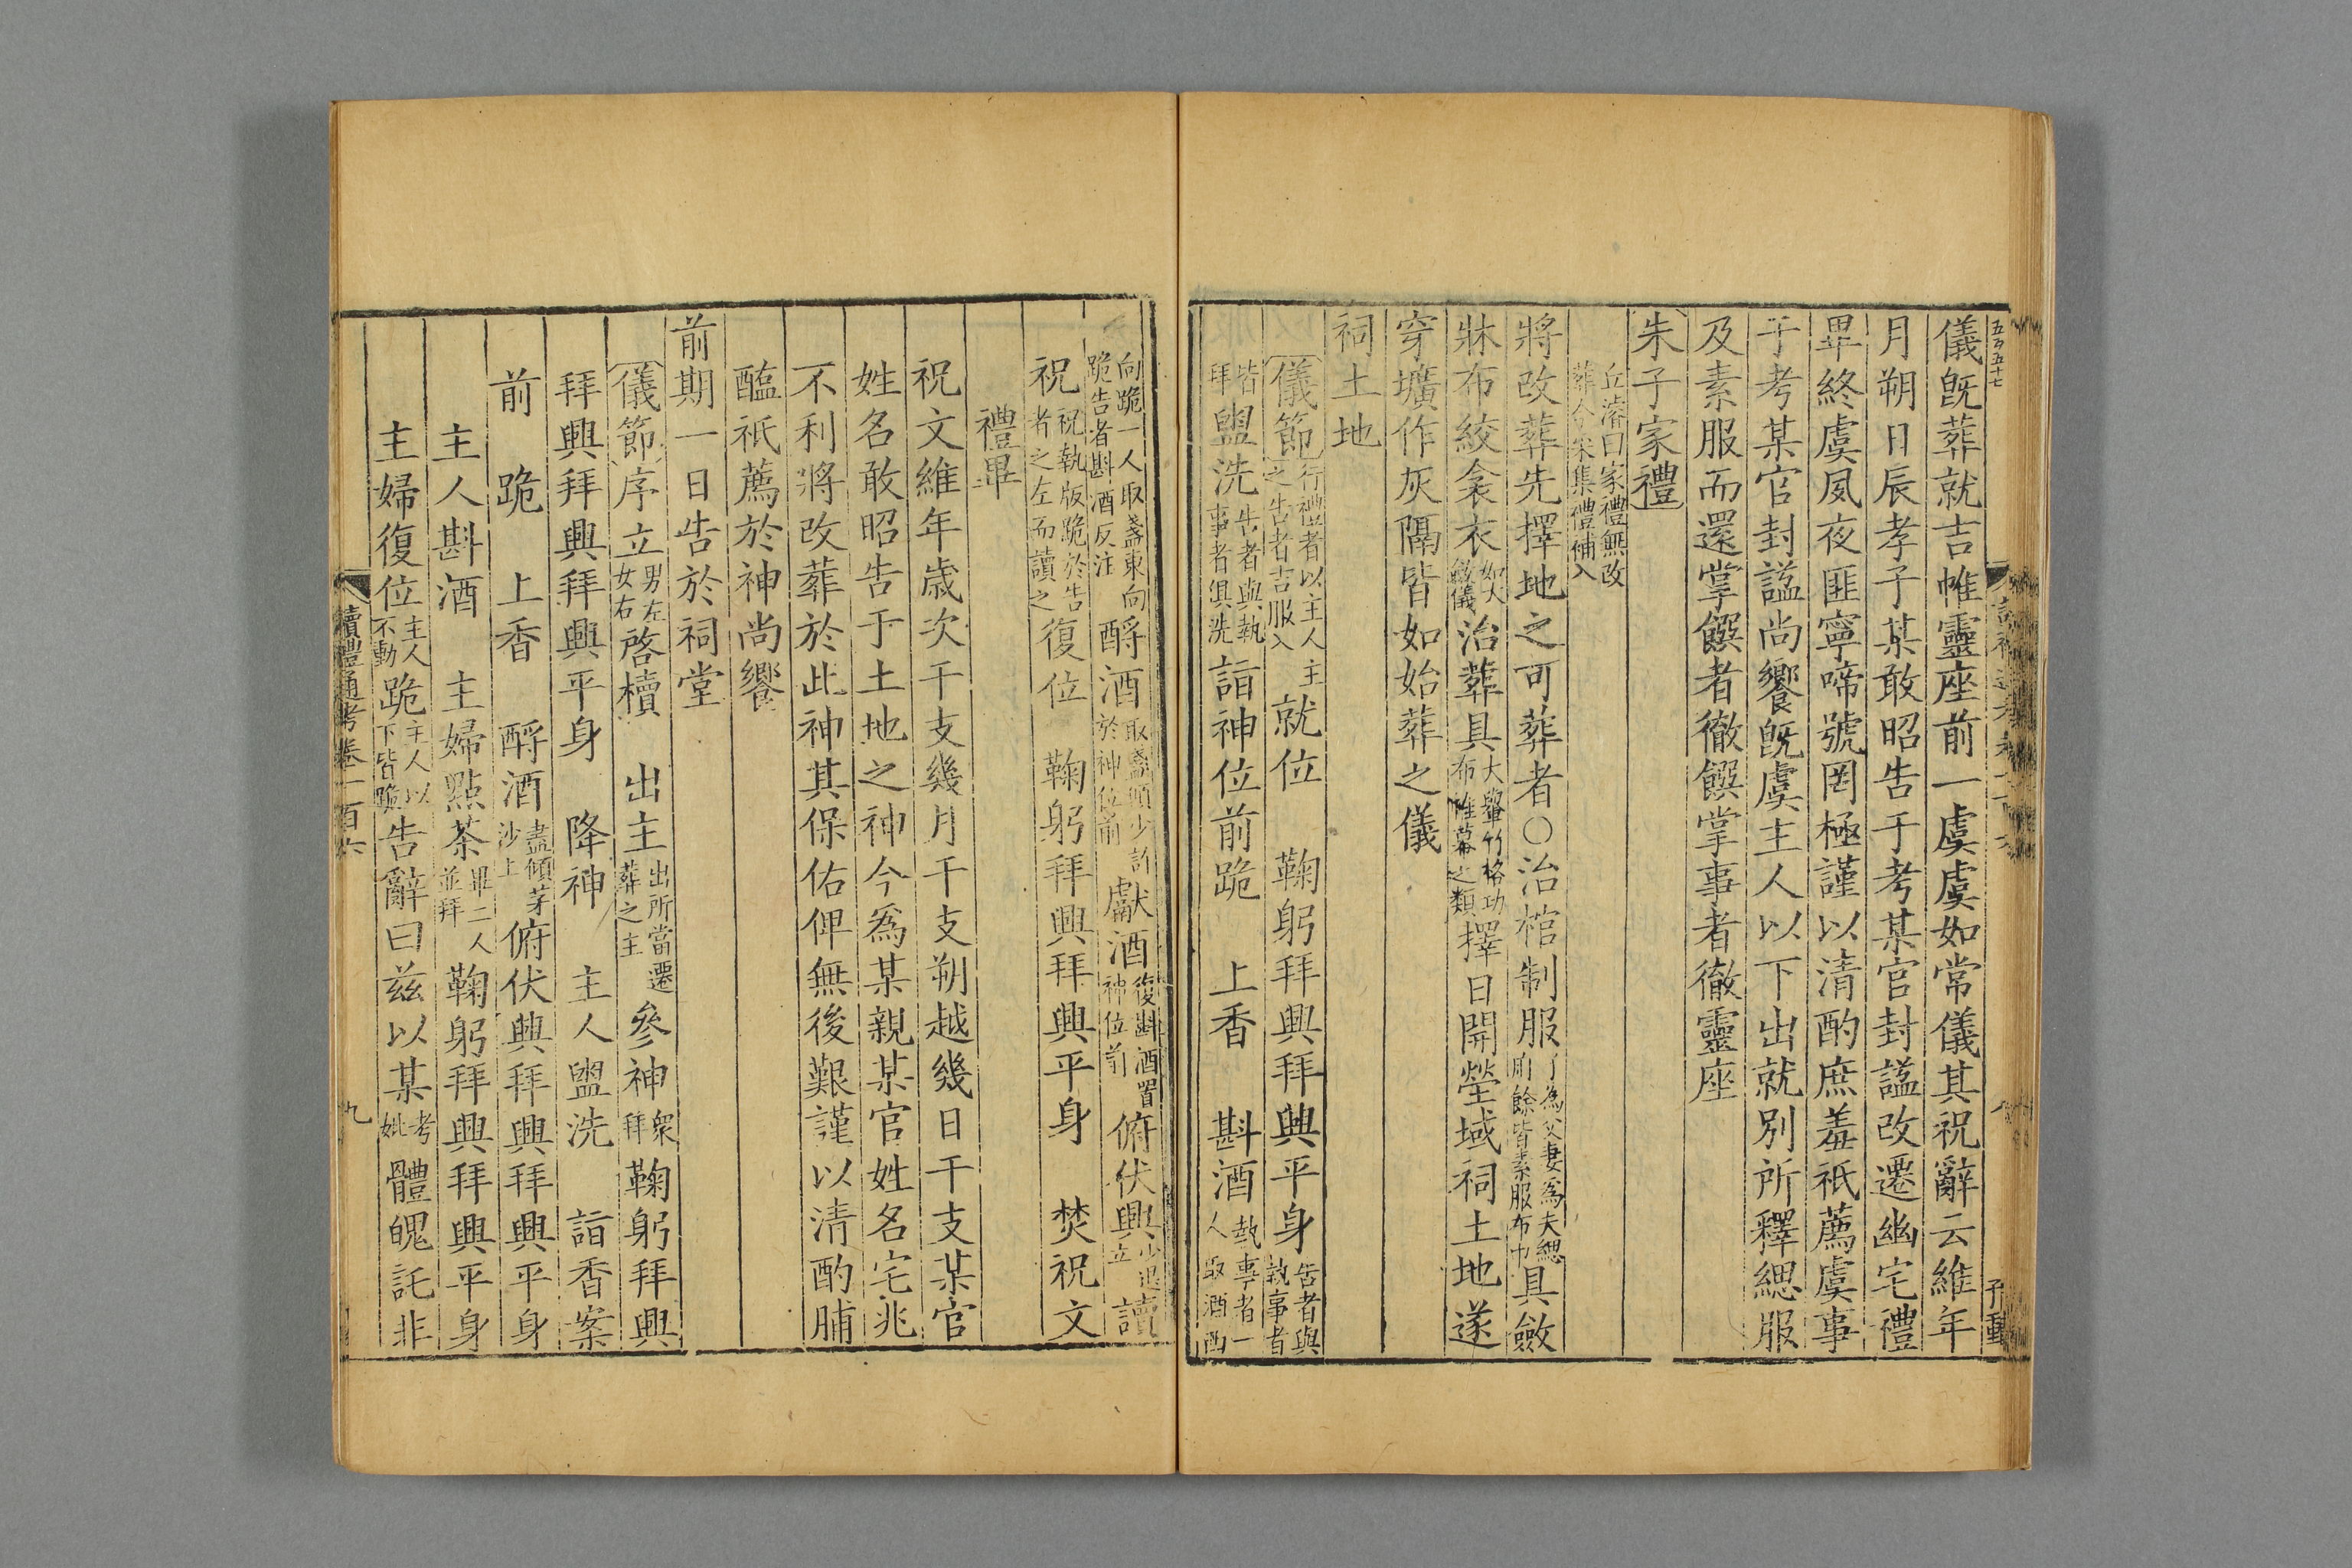 五百五十七
儀既葬就吉帷靈座前一虞虞如常儀其祝辭云維年
月朔日辰孝子某敢昭告于考某官封諡改遷幽宅禮
畢終虞夙夜匪寧啼號罔極謹以清酌庶羞祇薦虞事
于考某官封諡尚饗既虞主人以下出就別所釋緦服
及素服而還掌饌者徹饌掌事者徹靈座
朱子家禮
丘濬曰家禮無改
葬今采集禮補入
將改葬先擇地之可葬者○治棺制服
為父妻為夫緦
餘皆素服布巾
具斂
牀布絞衾衣
如大
斂儀
治葬具
大轝竹格功
布帷幕之類
擇日開塋域祠土地遂
穿壙作灰隔皆如始葬之儀
祠土地
儀節
行禮者以主人
之告者吉服入
就位　鞠躬拜興拜興平身
告者與
執事者
皆
拜
盥洗
告者與執
事者俱洗
詣神位前跪　上香　斟酒
執事者一
人取酒西
向跪一人取盞東向
跪告者斟酒反注
酹酒
取盞傾少許
於神位前
獻酒
復斟酒置
神位前
俯伏興
少退
立
讀
祝
祝執版跪於告
者之左而讀之
復位　鞠躬拜興拜興平身　焚祝文
禮畢
祝文維年歲次干支幾月干支朔越幾日干支某官
姓名敢昭告于土地之神今為某親某官姓名宅兆
不利將改葬於此神其保佑俾無後艱謹以清酌脯
醢祇薦於神尚饗
前期一日告於祠堂
儀節序立
男左
女右
啓櫝　出主
出所當遷
葬之主
參神
衆
拜
鞠躬拜興
拜興拜興拜興平身　降神　主人盥洗　詣香案
前　跪　上香　酹酒
盡傾茅
沙上
俯伏興拜興拜興平身
主人斟酒　主婦點茶
畢二人
並拜
鞠躬拜興拜興平身
主婦復位
主人
不動
跪
主人以
下皆跪
告辭曰兹以某
考
妣
體魄託非
讀禮通考卷一百六
九